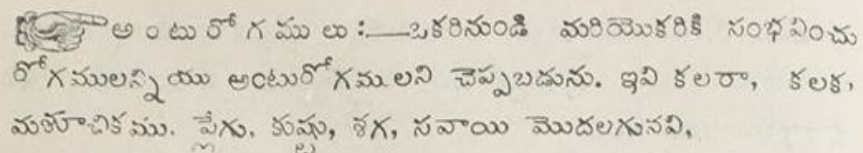 అంటురోగములు:—ఒకరినుండి మరియొకరికి సంభవించు
రోగములన్నియు అంటురోగమలని చెప్పబడును. ఇవి కలరా, కలక,
మశూచికము. ప్లేగు. కుష్టు, శగ, సవాయి మొదలగునవి,